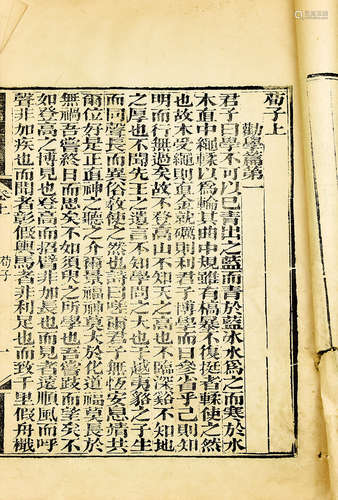 荀子上
勸學篇第一
君子曰學不可以已青出之藍而青於藍冰水爲之而寒於水
木直中繩輮以爲輪其曲中規雖有槁暴不復挺者輮使之然
也故木受繩則直金就礪則利君子博學而日參省乎己則知
明而行無過矣故不登高山不知天之高也不臨深谿不知地
之厚也不聞先王之遺言不知學問之大也于越夷貉之子生
而同聲長而異俗敎使之然也詩曰嗟爾君子無恆安息靖共
爾位好是正直神之聽之介爾景福神莫大於化道福莫長於
無禍吾嘗終日而思矣不如須臾之所學也吾嘗跂而望矣不
如登高之博見也登高而招臂非加長也而見者遠順風而呼
聲非加疾也而聞者彰假輿馬者非利足也而致千里假舟檝
荀子
一